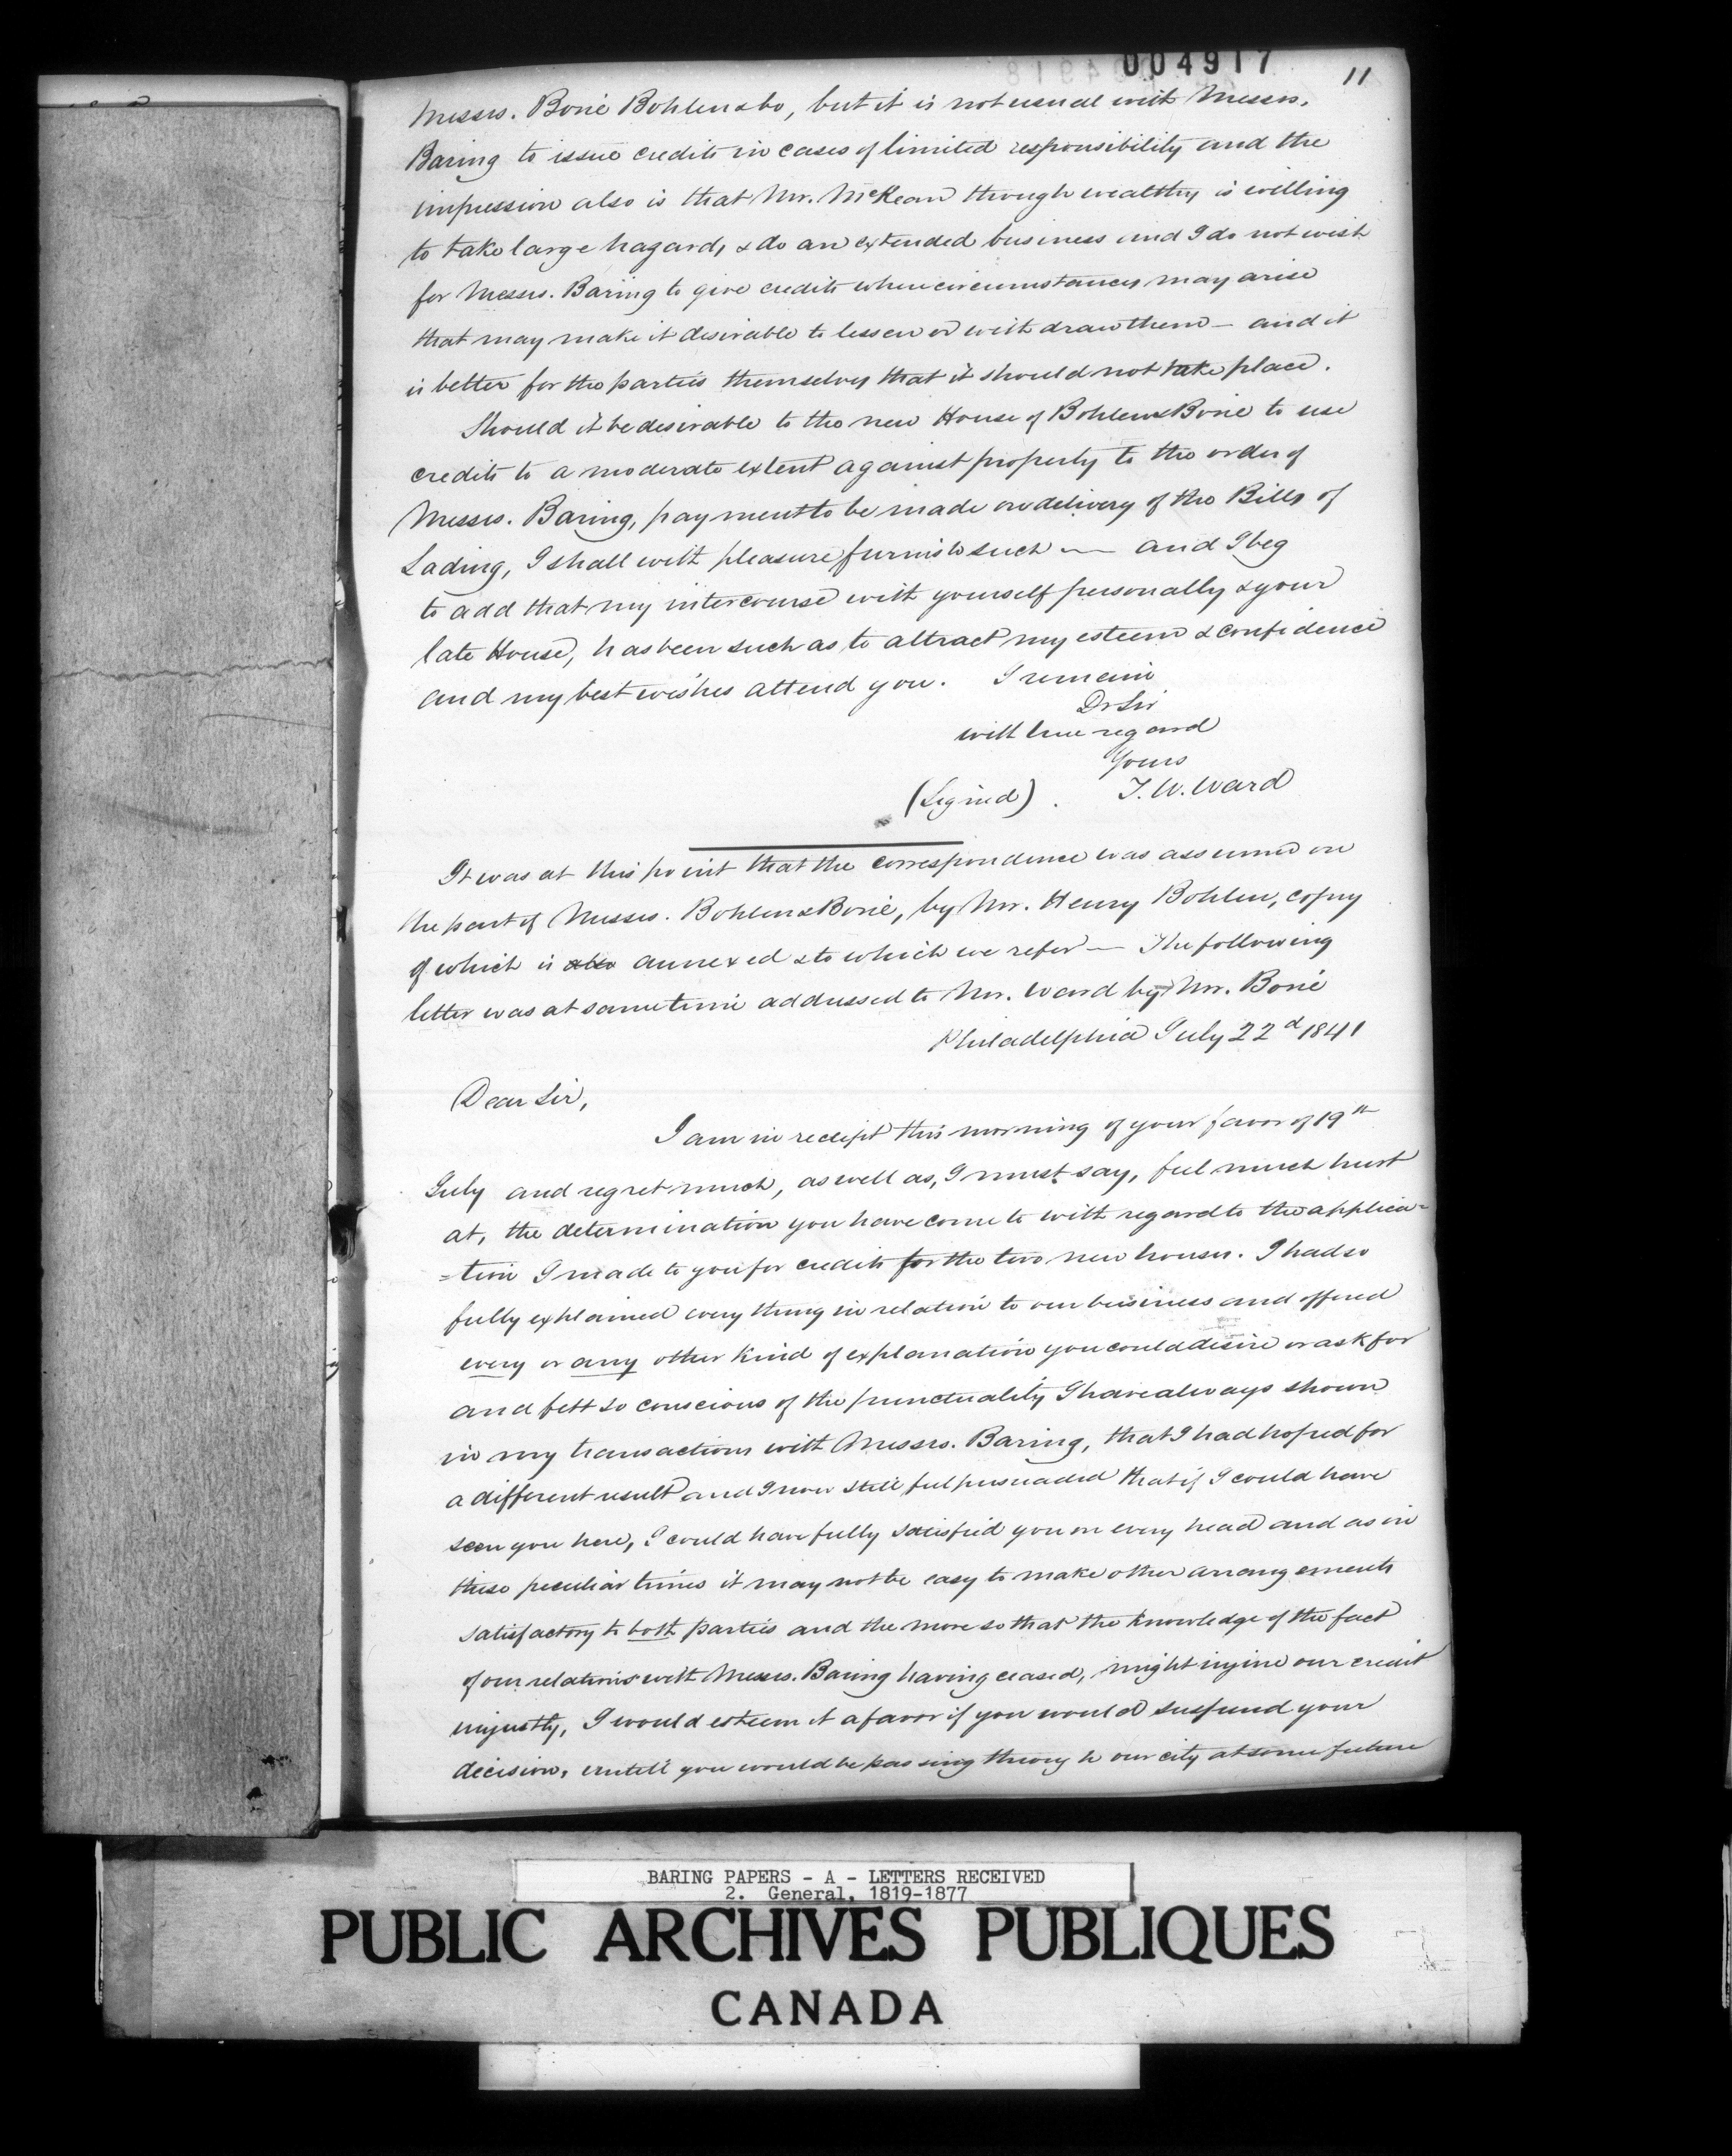 004917
11
Messrs. Borie Bohlen & Co, but it is not usual with Messrs.
Baring to issue credits in cases of limited responsibility and the
impression also is that Mr. McKean though wealthy is willing
to take large hazard, & do an extended business and I do not wish
for Messrs. Baring to give credits when circumstances may arise
that may make it desirable to lessen or withdraw them — and it
is better for the parties themselves that it should not take place.
Should it be desirable to the new House of Bohlen & Borie to use
credits to a moderate extent against property to the order of
Messrs. Baring, payment to be made on delivery of the Bills of
Lading, I shall with pleasure furnish such — and I beg
to add that my intercourse with yourself personally & your
late House, has been such as to attract my esteem & confidence
and my best wishes attend you. I remain
Dr Sir
with true regard
Yours
(Signed). T. W. Ward
It was at this point that the correspondence was assumed on
the part of Messrs. Bohlen & Borie, by Mr. Henry Bohlen, copy
of which is also annexed & to which we refer — The following
letter was at same time addressed to Mr. Ward by Mr. Borie
Philadelphia July 22d 1841
Dear Sir,
I am in receipt this morning of your favor of 19th
July and regret much, as well as, I must say, feel much hurt
at, the determination you have come to with regard to the applica=
=tion I made to you for credits for the two new houses. I had so
fully explained every thing in relation to our business and offered
every or any other kind of explanation you could desire or ask for
and felt so conscious of the punctuality I have always shown
in my transactions with Messrs. Baring, that I had hoped for
a different result and I now still feel persuaded that if I could have
seen you here, I could have fully satisfied you on every head and as in
these peculiar times it may not be easy to make other arrangements
satisfactory to both parties and the more so that the knowledge of the fact
of our relations with Messrs. Baring having ceased, might injure our credit
unjustly, I would esteem it a favor if you would suspend your
decision, untill you would be passing through our city at some future
BARING PAPERS - A - LETTERS RECEIVED
2. General, 1819-1877
PUBLIC ARCHIVES PUBLIQUES
CANADA